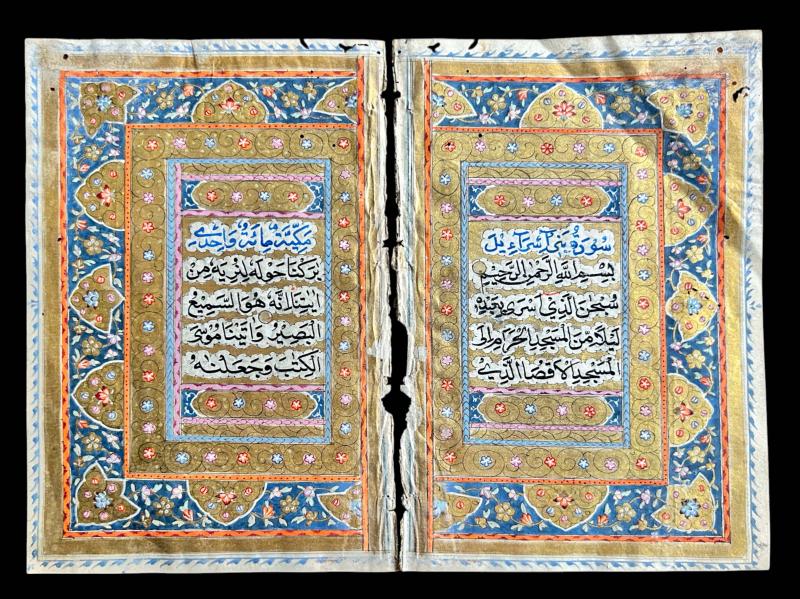 سورة بني اسرآءيل
بسم الله الرحمن الرحيم
سبحن الذي اسرى بعبده
ليلا من المسجد الحرام الى
المسجد الاقصا الذي
مكية مائة واحدى
بركنا حوله لنريه من
ايتنا انه هو السميع
البصير واتينا موسى
الكتب وجعلنه